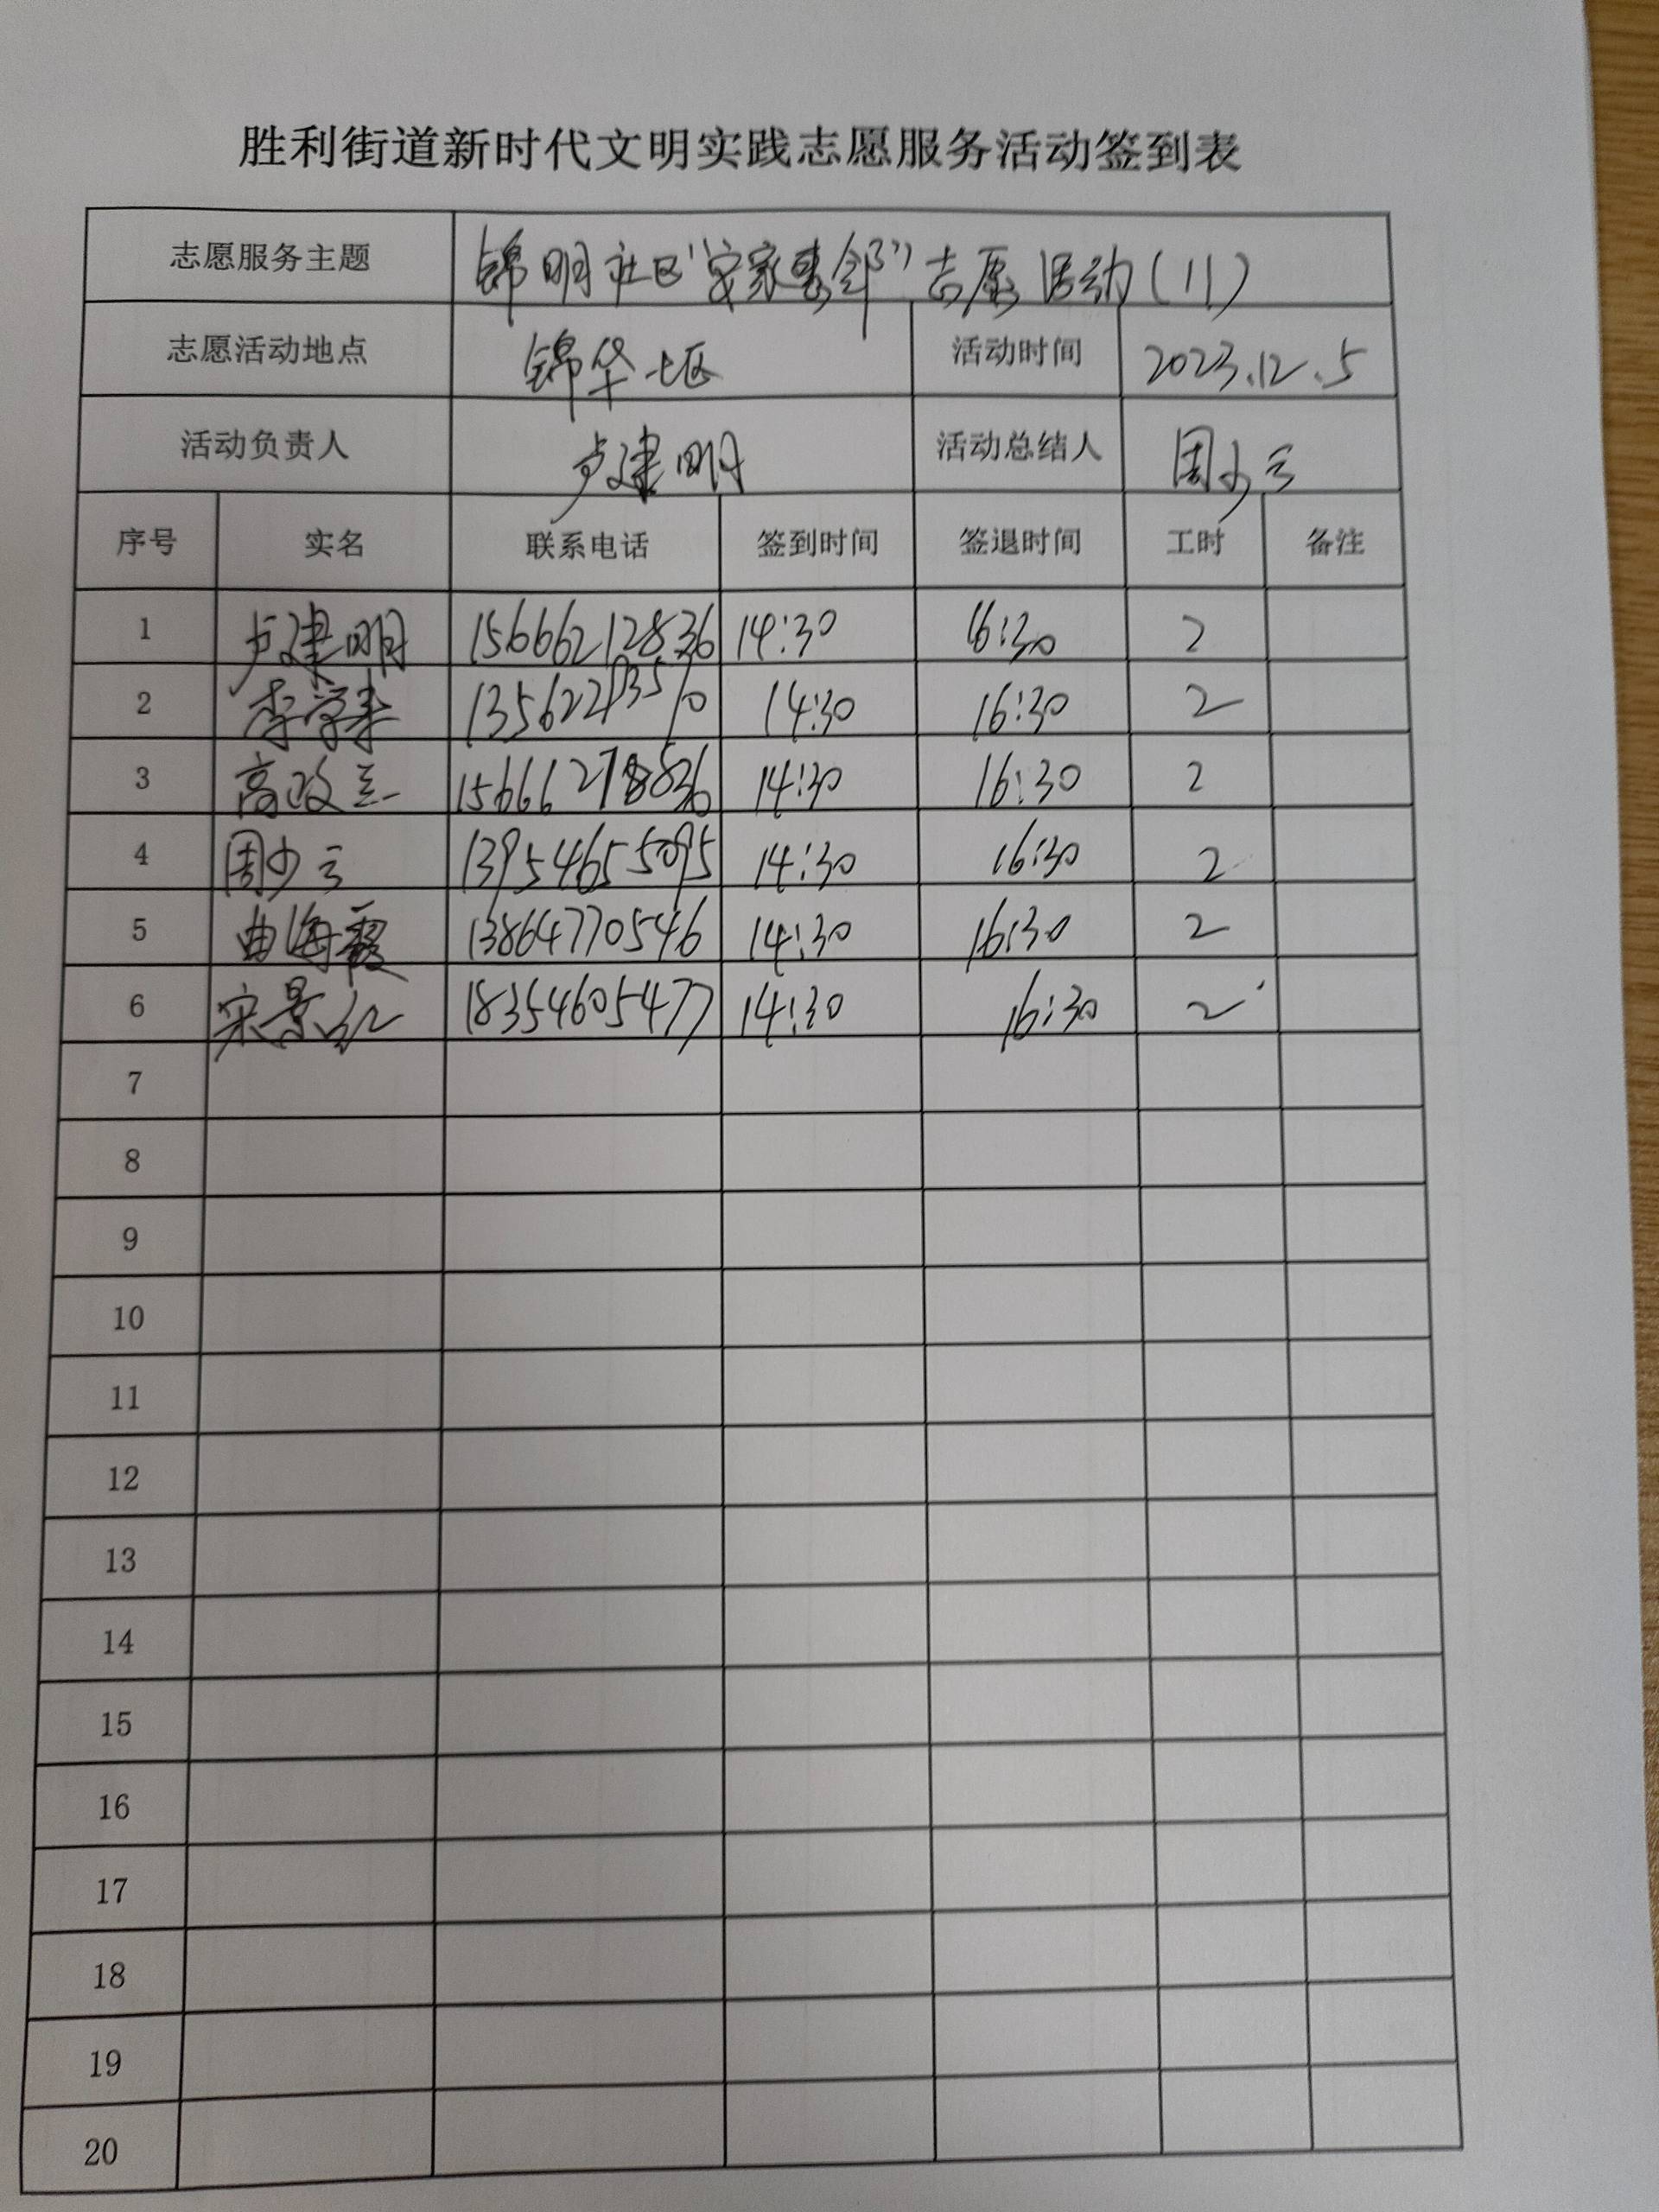 胜利街道新时代文明实践志愿服务活动签到表
志愿服务主题 锦明社区“安家惠邻”志愿活动(11)
志愿活动地点 锦华七区 活动时间 2023.12.5
活动负责人 卢建明 活动总结人 周少云
序号 实名 联系电话 签到时间 签退时间 工时 备注
1 卢建明 15666212836 14:30 16:30 2
2 李学 14:30 16:30 2
3 高政 14:30 16:30 2
4 周少云 13954655095 14:30 16:30 2
5 曲海霞 13864770546 14:30 16:30 2
6 宋景红 18354605477 14:30 16:30 2
7
8
9
10
11
12
13
14
15
16
17
18
19
20